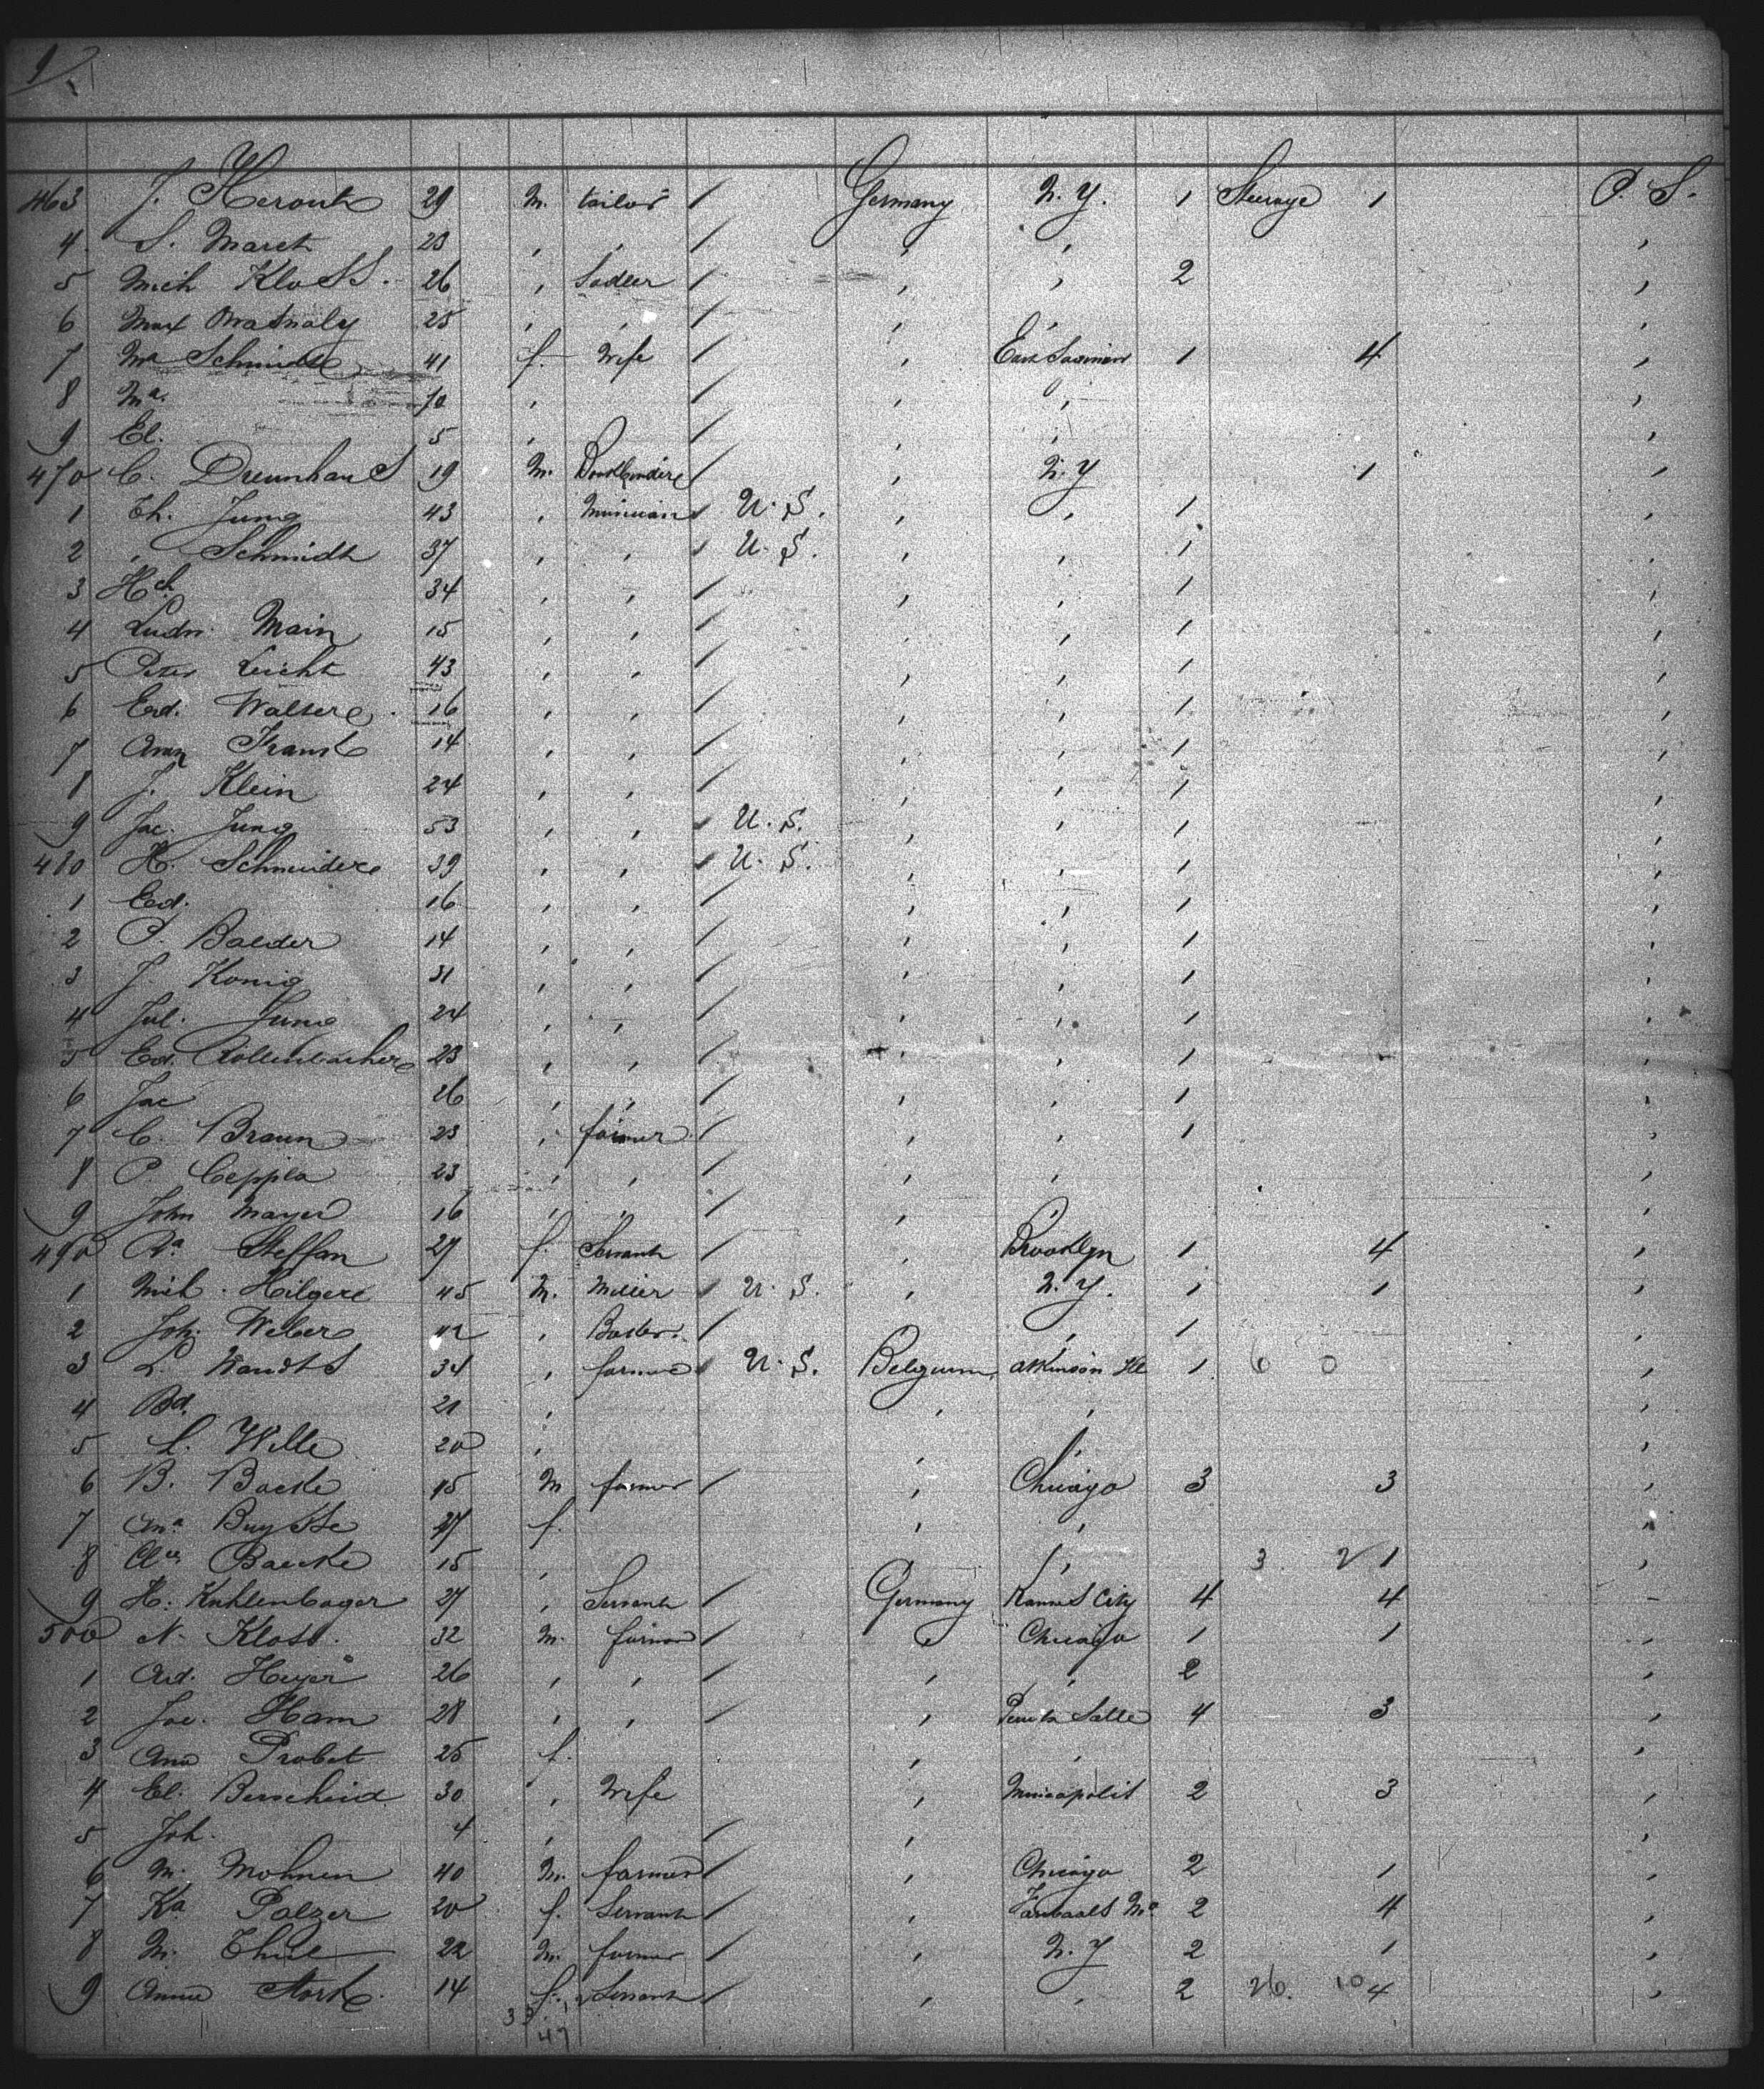 463 J. Kerouk 29 M. tailor / Germany N. Y. 1 Steerage 1 P. S.
4 S. March 23 , , / , , ,
5 Mich Kloss. 26 , Sadler / , , 2 ,
6 Max 25 , , / , , ,
7 Ma Schmidt 41 f. Wife / , East 1 4 ,
8 Ma. 10 , / , , ,
9 El. 5 , / , , ,
470 C. Drennhaus 19 M. Bookbinder / , N. Y 1 ,
1 Th. Jung 43 , Musician / U. S. , , 1 ,
2 , Schmidt 37 , , / U. S. , , 1 ,
3 Hch 34 , , / , , 1 ,
4 Ludw. Main 15 , , / , , 1 ,
5 Peter Leicht 43 , , / , , 1 ,
6 Ed. Walter 16 , , / , , 1 ,
7 Frank 14 , , / , , 1 ,
8 J. Klein 24 , , / , , 1 ,
9 Jac. Jung 53 , , / U. S. , , 1 ,
480 H. Schneider 39 , , / U. S. , , 1 ,
1 Ed. 16 , , / , , 1 ,
2 P. Balder 14 , , / , , 1 ,
3 J. Konig 31 , , / , , 1 ,
4 Jul. Jung 24 , , / , , 1 ,
5 Ed. Rollenbacher 23 , , / , , 1 ,
6 Jac 26 , , / , , 1 ,
7 C. Braun 23 , farmer / , , 1 ,
8 P. Ceppla 23 , , / , , ,
9 John Mayer 16 , , / , , ,
490 Ra Steffan 29 f. Servant / , Brooklyn 1 4 ,
1 Mich. Hilger 45 M. Miller / U. S. , N. Y. 1 1 ,
2 Joh. Weber 42 , / , , 1 ,
3 L. Wandts 34 , farmer / U. S. Belgium atkinson Ill 1 6 0 ,
4 Bd. 21 , , , ,
5 L. Wille 20 , , , ,
6 B. Backe 45 M farmer / , Chicago 3 3 ,
7 Ana Buysse 47 f. , , ,
8 Baecke 15 , , 3. 2 1 ,
9 H. Kuhlenbager 27 , Servant / Germany Kansas City 4 4 -
500 N. Kloss. 32 M. farmer / , Chicago 1 1 ,
1 Ad. Heyer 26 , , / , , 2 ,
2 Jac. Ham 28 , , / , Salle 4 3 ,
3 Ana Probst 25 f. , , ,
4 El. Berscheid 30 , Wife , Mineapolis 2 3 ,
5 Joh. 4 , / , ,
6 M. Mohnen 40 M. farmer / , Chicago 2 1 ,
7 Ka Palzer 20 f. Servant / , 2 4 ,
8 M. Thul 22 M. farmer / , N. Y 2 1 ,
9 Anna Stork. 14 f. Servant / , , 2 26. 10 4 ,
33
47